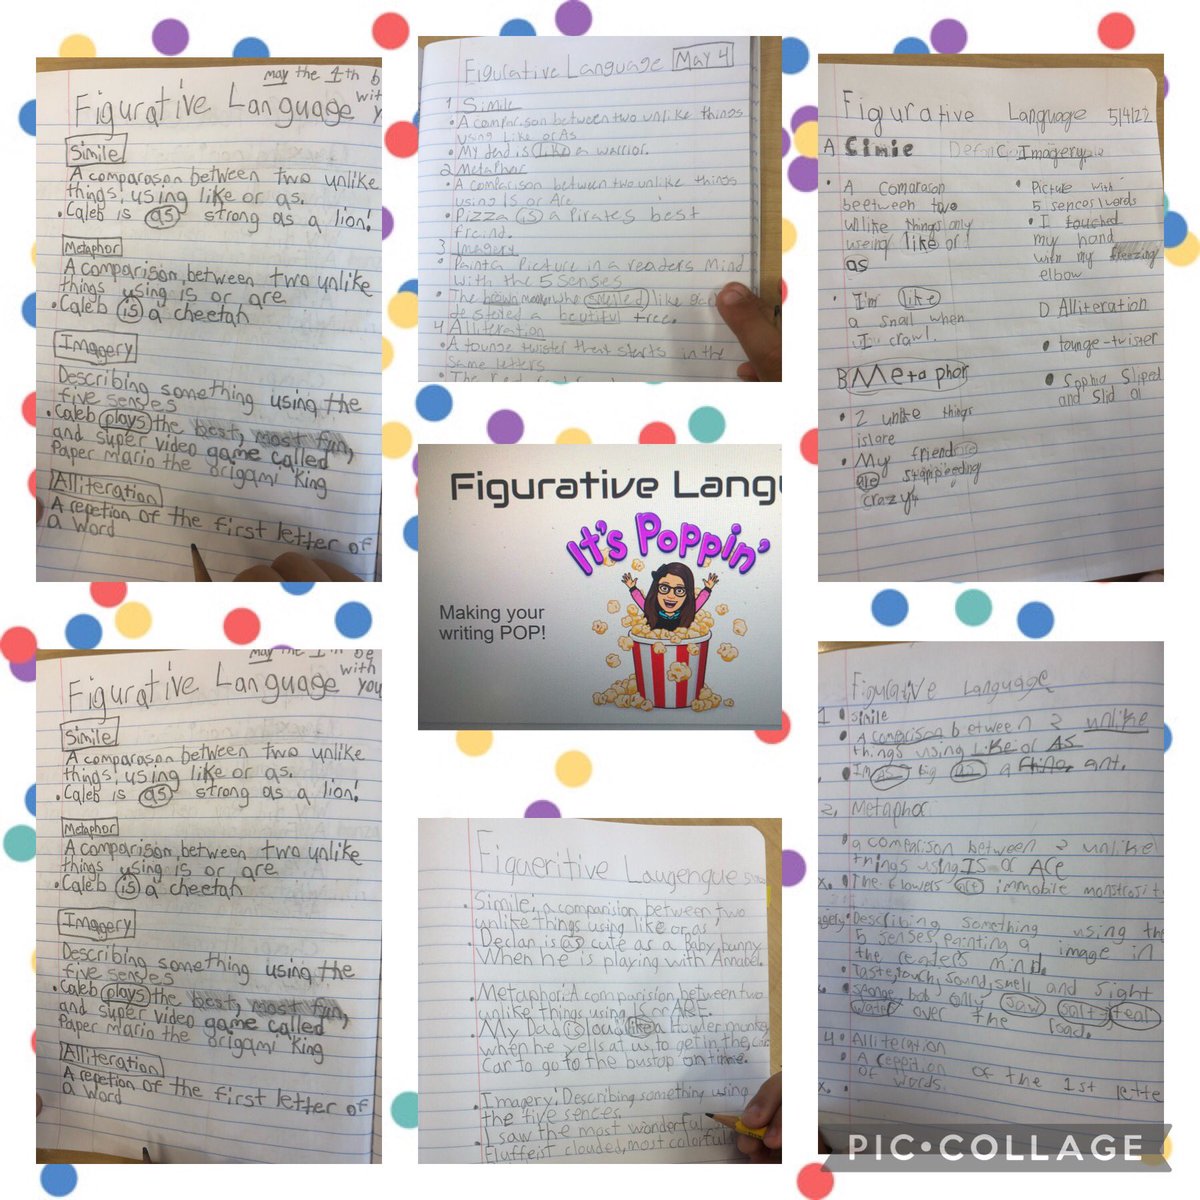 may the 4th b
with
y
Figurative Language
Simile
A comparason between two unlike
things! using like or as.
• Caleb is as strong as a lion!
Metaphor
A comparison between two unlike
things using is or are
• Caleb is a cheetah
Imagery
Describing something using the
five senses
• Caleb plays the best, most fun,
and super video game called
Paper mario the origami king
Alliteration
A repetion of the first letter of
a word
Figurative Language May 4
1 Simile
• A comparison between two unlike things
using like or As
• My dad is like a warrior.
2 Metaphor
• A comparison between two unlike things
using Is or Are
• Pizza is a Pirates best
freind.
3 Imagery
• Paint a Picture in a readers Mind
with the 5 senses
• The brown who smelled like
a beutiful tree.
4 Alliteration
• A tounge twister that starts in the
same letters
• The Red
Figurative Language 5/4/22
A Simie
• A Comarason
beetween two
unlike things only
useing like or
as
• I'm like
a snail when
I crawl.
B Metaphor
• 2 unlike things
is/are
• My friend
are
crazy
C. Imagery
• Picture with
5 sences/words
• I touched
my hand
with my freezing
elbow
D Alliteration
• tounge-twister
• Sophia Sliped
and Slid
Figurative Langu
It's Poppin'
Making your
writing POP!
may the 4th be
with
you
Figurative Language
Simile
A comparason between two unlike
things! using like or as.
• Caleb is as strong as a lion!
Metaphor
A comparison between two unlike
things using is or are
• Caleb is a cheetah
Imagery
Describing something using the
five senses
• Caleb plays the best, most fun,
and super video game called
Paper mario the origami king
Alliteration
A repetion of the first letter of
a word
Figueritive Laugengue
• Simile, a comparision between two
unlike things using like or as
• Declan is as cute as a baby bunny
When he is playing with Annabel.
• Metaphor: A comparision between two
unlike things using IS or ARE.
• My Dad is loud like a Howler monkey
when he yells at us to get in the
car to go to the bustop on time.
• Imagery: Describing something using
the five sences.
• I saw the most wonderful
fluffeist clouded, most colorful
Figurative Language
1 • simile
• A comparison between 2 unlike
things using Like or AS
• Im as big as a ant.
2, Metaphor
a comparison between 2 unlike
things using IS or Are
• The flowers are immobile monstrosit
• Describing something using the
5 senses, painting a image in
the readers mind.
• taste, touch, sound, smell and sight
• sponge bob only saw salty teal
water over the road.
4 • Alliteration
• A reppition of the 1st lette
of words.
PIC•COLLAGE